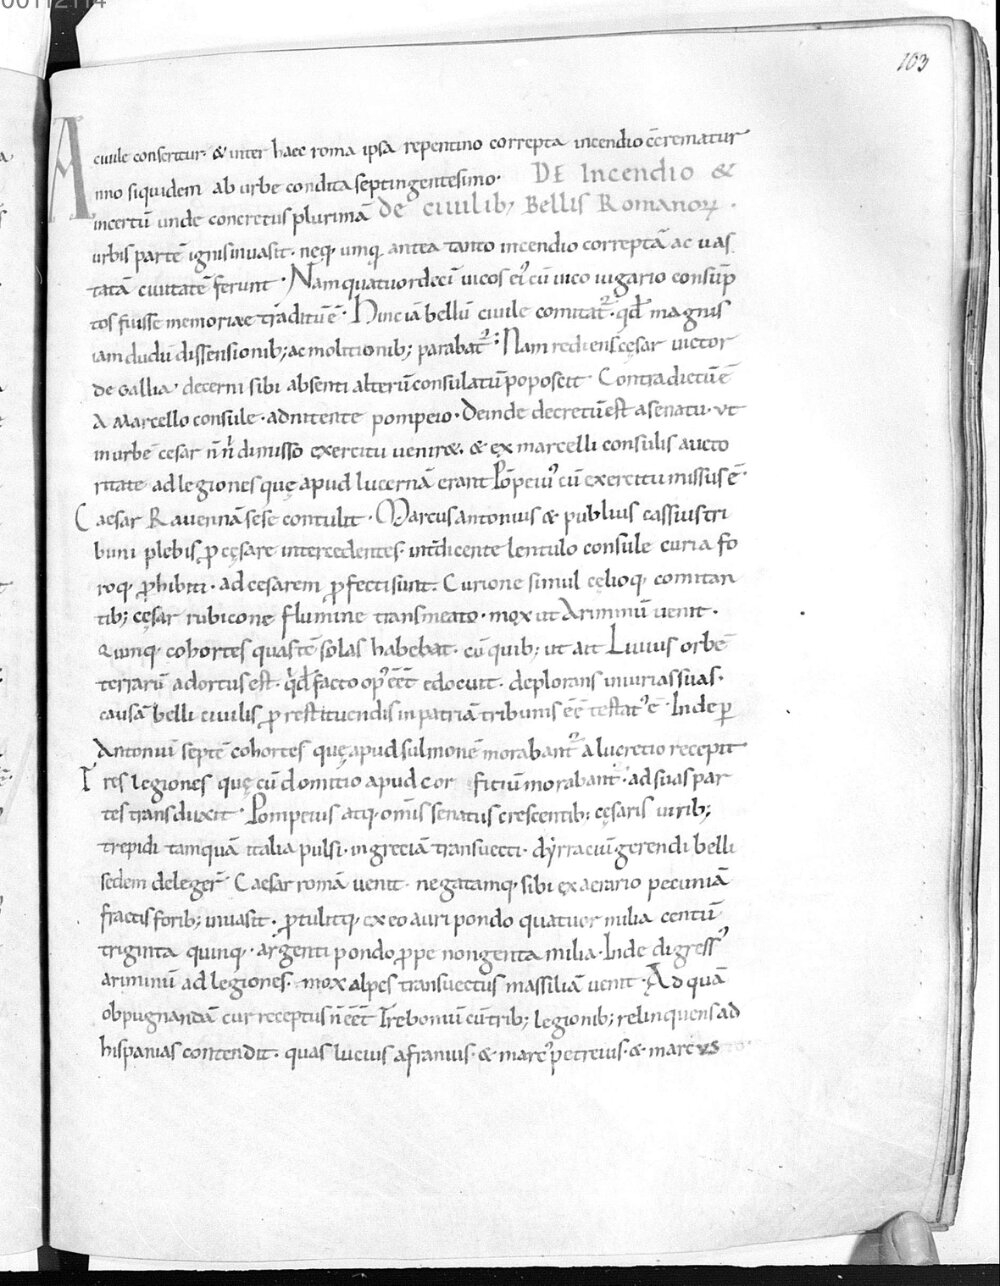 00112114
103
ciuile conseritur· & inter haec roma ipsa repentino correpta incendio c̄crematur
Anno siquidem ab urbe condita septingentesimo· DE Incendio &
incertū unde concretus plurimā de ciuilib; Bellis Romanoꝝ·
urbis partē ignis inuasit· neq· umq̄ antea tanto incendio correptā ac uas
tatā ciuitatē ferunt· Nam quatuordecī uicos ei᾽ cū uico uigario consūp
tos fuisse memoriae traditū ē· Hinc iā bellū ciuile comitat᾽· qd̄ magnis
iam dudū dissensionib; ac molitionib; parabat᾽· Nam rediens cęsar uictor
de Gallia· decerni sibi absenti alterū consulatū poposcit Contradictū ē
A Marcello consule· adnitente pompeio· Deinde decretū est a senatu· ut
in urbē cesar n̄ n̄ dimisso exercitu uenir&· & ex marcelli consulis aucto
ritate ad legiones quę apud lucernā erant Pōpeiu᾽ cū exercitu missus ē·
Caesar Rauennā sese contulit· Marcus antonius & publius cassius tri
buni plebis ꝓ cęsare intercedentes· int̄dicente lentulo consule curia fo
roq· ꝓhibiti· ad cesarem ꝓfecti sunt· Curione simul cęlioq· comitan
tib; cęsar rubicone flumine transmeato· mox ut Ariminū uenit·
Quinq· cohortes quas tē solas habebat· cū quib; ut ait Liuius orbē
terrarū adortus est· qd̄ facto op᾽ eēt edocuit· deplorans iniurias suas·
causā belli ciuilis ꝓ restituendis in patriā tribunis eē testat᾽ ē· Inde ꝑ
Antoniū septē cohortes quę apud sulmonē morabant᾽ a lucretio recepit
Tres legiones quę cū domitio apud cor ficiū morabant᾽· ad suas par
tes transduxit· Pompeius atq· omīs senatus crescentib; cęsaris uirib;
trepidi tamquā italia pulsi· in greciā transuecti· dyrraciū gerendi belli
sedem deleger̄ Caesar romā uenit· negatamq· sibi ex aerario pecuniā
fractis forib; inuasit· ꝓtulitq· ex eo auri pondo quatuor milia centū
triginta quinq·· argenti pondo ꝓpe nongenta milia· Inde digress᾽
ariminū ad legiones· mox alpes transuectus massiliā uenit· Ad quā
obpugnandā cur receptus n̄ eēt Treboniū cū trib; legionib; relinquens ad
hispanias contendit· quas lucius afranius· & marc᾽ petreius· & marcus